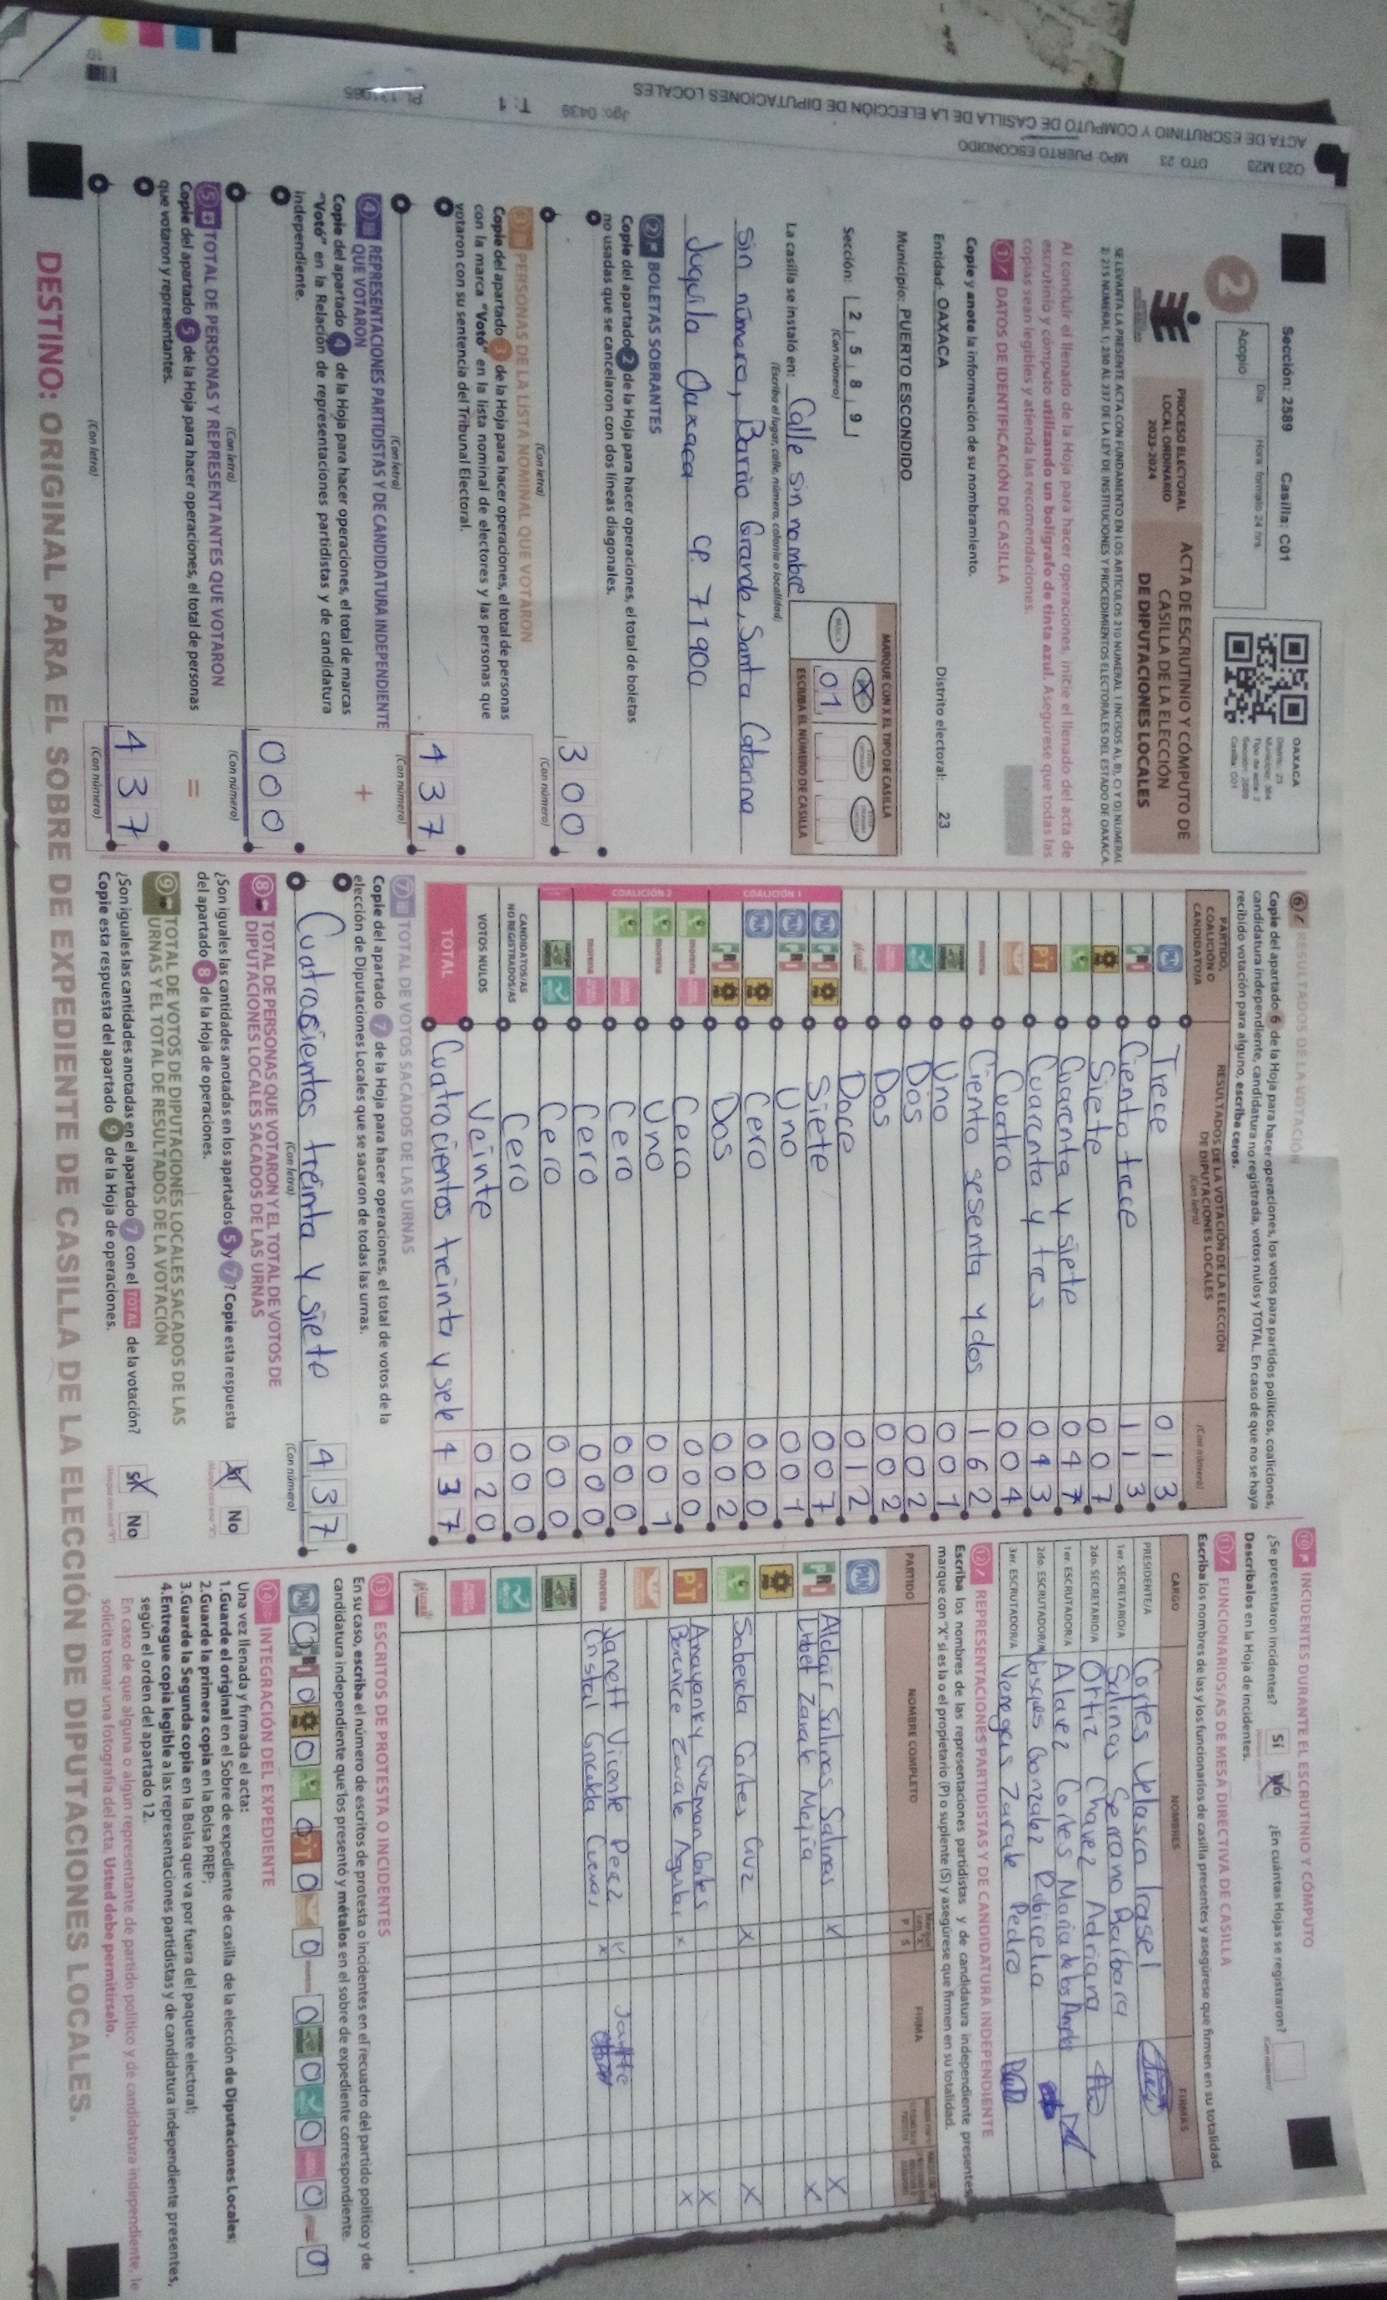 ACTA DE ESCRUTINIO Y CÓMPUTO DE CASILLA DE LA ELECCIÓN DE DIPUTACIONES LOCALES
023 M23 DTO 23 MPO PUERTO ESCONDIDO
Jgo: 0439 T: 1
Sección: 2589 Casilla: C01
2
Día Hora: formato 24 hrs
Acopio
OAXACA
Casilla: C01
PROCESO ELECTORAL
LOCAL ORDINARIO
2023-2024
ACTA DE ESCRUTINIO Y CÓMPUTO DE
CASILLA DE LA ELECCIÓN
DE DIPUTACIONES LOCALES
Al concluir el llenado de la Hoja para hacer operaciones, inicie el llenado del acta de
escrutinio y cómputo utilizando un bolígrafo de tinta azul. Asegúrese que todas las
copias sean legibles y atienda las recomendaciones.
1 DATOS DE IDENTIFICACIÓN DE CASILLA
Copie y anote la información de su nombramiento.
Entidad: OAXACA Distrito electoral: 23
Municipio: PUERTO ESCONDIDO
Sección: 2 5 8 9
(Con número)
MARQUE CON X EL TIPO DE CASILLA
X
01
ESCRIBA EL NÚMERO DE CASILLA
La casilla se instaló en: Calle sin nombre
(Escriba el lugar, calle, número, colonia o localidad)
sin número, Barrio Grande, Santa Catarina
Juquila Oaxaca CP. 71900
2 BOLETAS SOBRANTES
Copie del apartado 2 de la Hoja para hacer operaciones, el total de boletas
no usadas que se cancelaron con dos líneas diagonales.
300
(Con letra) (Con número)
3 PERSONAS DE LA LISTA NOMINAL QUE VOTARON
Copie del apartado 3 de la Hoja para hacer operaciones, el total de personas
con la marca "Votó" en la lista nominal de electores y las personas que
votaron con su sentencia del Tribunal Electoral.
437
(Con letra) (Con número)
4 REPRESENTACIONES PARTIDISTAS Y DE CANDIDATURA INDEPENDIENTE
QUE VOTARON +
Copie del apartado 4 de la Hoja para hacer operaciones, el total de marcas
"Votó" en la Relación de representaciones partidistas y de candidatura
independiente.
000
(Con letra) (Con número)
5 TOTAL DE PERSONAS Y REPRESENTANTES QUE VOTARON
Copie del apartado 5 de la Hoja para hacer operaciones, el total de personas =
que votaron y representantes.
437
(Con letra) (Con número)
6 RESULTADOS DE LA VOTACIÓN
Copie del apartado 6 de la Hoja para hacer operaciones, los votos para partidos políticos, coaliciones,
candidatura independiente, candidatura no registrada, votos nulos y TOTAL. En caso de que no se haya
recibido votación para alguno, escriba ceros.
PARTIDO,
COALICIÓN O
CANDIDATO/A
RESULTADOS DE LA VOTACIÓN DE LA ELECCIÓN
DE DIPUTACIONES LOCALES
(Con letra) (Con número)
PAN Trece 013
PRI Ciento trece 113
Siete 007
Cuarenta y siete 047
PT Cuarenta y tres 043
Cuatro 004
morena Ciento sesenta y dos 162
Uno 001
Dos 002
Dos 002
Doce 012
COALICIÓN 1
Siete 007
Uno 001
Cero 000
Dos 002
COALICIÓN 2
morena Cero 000
morena Uno 001
Cero 000
morena Cero 000
Cero 000
CANDIDATOS/AS
NO REGISTRADOS/AS Cero 000
VOTOS NULOS Veinte 020
TOTAL Cuatrocientos treinta y sete 437
7 TOTAL DE VOTOS SACADOS DE LAS URNAS
Copie del apartado 7 de la Hoja para hacer operaciones, el total de votos de la
elección de Diputaciones Locales que se sacaron de todas las urnas.
Cuatrosientos treinta y siete 437
(Con letra) (Con número)
8 TOTAL DE PERSONAS QUE VOTARON Y EL TOTAL DE VOTOS DE
DIPUTACIONES LOCALES SACADOS DE LAS URNAS
¿Son iguales las cantidades anotadas en los apartados 5 y 7? Copie esta respuesta
del apartado 8 de la Hoja de operaciones.
Sí No
9 TOTAL DE VOTOS DE DIPUTACIONES LOCALES SACADOS DE LAS
URNAS Y EL TOTAL DE RESULTADOS DE LA VOTACIÓN
¿Son iguales las cantidades anotadas en el apartado 7 con el TOTAL de la votación?
Copie esta respuesta del apartado 9 de la Hoja de operaciones.
Sí No
10 INCIDENTES DURANTE EL ESCRUTINIO Y CÓMPUTO
¿Se presentaron incidentes? Sí No ¿En cuántas Hojas se registraron?
Descríbalos en la Hoja de incidentes.
11 FUNCIONARIOS/AS DE MESA DIRECTIVA DE CASILLA
Escriba los nombres de las y los funcionarios de casilla presentes y asegúrese que firmen en su totalidad.
CARGO NOMBRES FIRMAS
PRESIDENTE/A Cortes Velasco Irasel
1er. SECRETARIO/A Salinas Serrano Barbara
2do. SECRETARIO/A Ortiz Chavez Adriana
1er. ESCRUTADOR/A Alavez Cortes Maria de los Angeles
2do. ESCRUTADOR/A Vasques Gonzalez Rubicelia
3er. ESCRUTADOR/A Venegas Zarate Pedro
12 REPRESENTACIONES PARTIDISTAS Y DE CANDIDATURA INDEPENDIENTE
Escriba los nombres de las representaciones partidistas y de candidatura independiente presentes,
marque con "X" si es la o el propietario (P) o suplente (S) y asegúrese que firmen en su totalidad.
PARTIDO NOMBRE COMPLETO P S FIRMA
PAN
PRI Aldair Salinas Salinas X X
Lizbet Zarate Mejia X
Sabeida Cortes Cruz X X
PT Anayanky Guzman Cortes X
Berenice Zarate Aguilar X X
morena Janett Vicente Perez X Janette
Cristal Gricelda Cuevas X
13 ESCRITOS DE PROTESTA O INCIDENTES
En su caso, escriba el número de escritos de protesta o incidentes en el recuadro del partido político y de
candidatura independiente que los presentó y métalos en el sobre de expediente correspondiente.
0 0 0 0 0 0 0 0 0 0 0
14 INTEGRACIÓN DEL EXPEDIENTE
Una vez llenada y firmada el acta:
1.Guarde el original en el Sobre de expediente de casilla de la elección de Diputaciones Locales;
2.Guarde la primera copia en la Bolsa PREP;
3.Guarde la Segunda copia en la Bolsa que va por fuera del paquete electoral;
4.Entregue copia legible a las representaciones partidistas y de candidatura independiente presentes,
según el orden del apartado 12.
En caso de que alguna o algún representante de partido político y de candidatura independiente, le
solicite tomar una fotografía del acta. Usted debe permitírselo.
DESTINO: ORIGINAL PARA EL SOBRE DE EXPEDIENTE DE CASILLA DE LA ELECCIÓN DE DIPUTACIONES LOCALES.